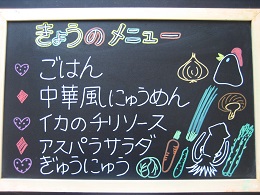 きょうのメニュー
ごはん
中華風にゅうめん
イカのチリソース
アスパラサラダ
ぎゅうにゅう